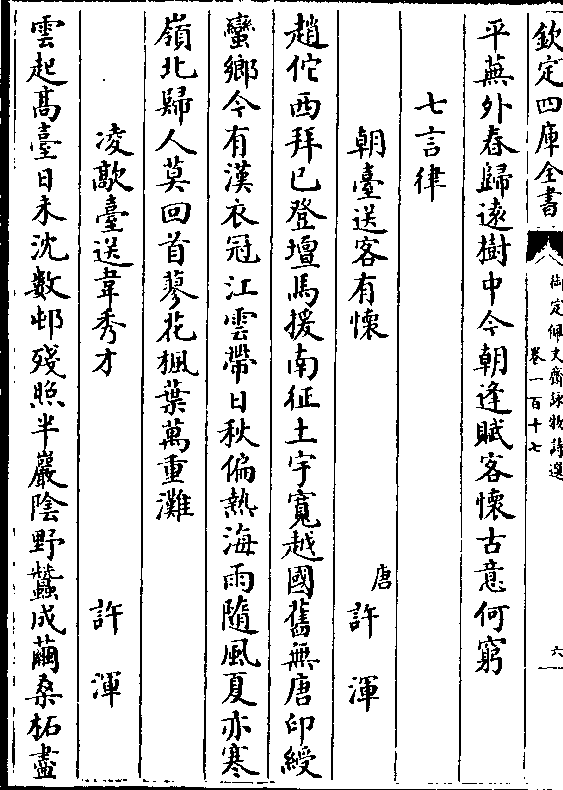 欽定四庫全書
御定佩文齋詠物詩選
卷一百十七
六
平蕪外春歸遠樹中今朝逢賦客懷古意何窮
七言律
朝臺送客有懷
唐許渾
趙佗西拜已登壇馬援南征土宇寬越國舊無唐印綬
蠻鄉今有漢衣冠江雲帶日秋偏熱海雨隨風夏亦寒
嶺北歸人莫回首蓼花楓葉萬重灘
凌歊臺送韋秀才
許渾
雲起髙臺日未沈數邨殘照半巖陰野蠶成繭桑柘盡